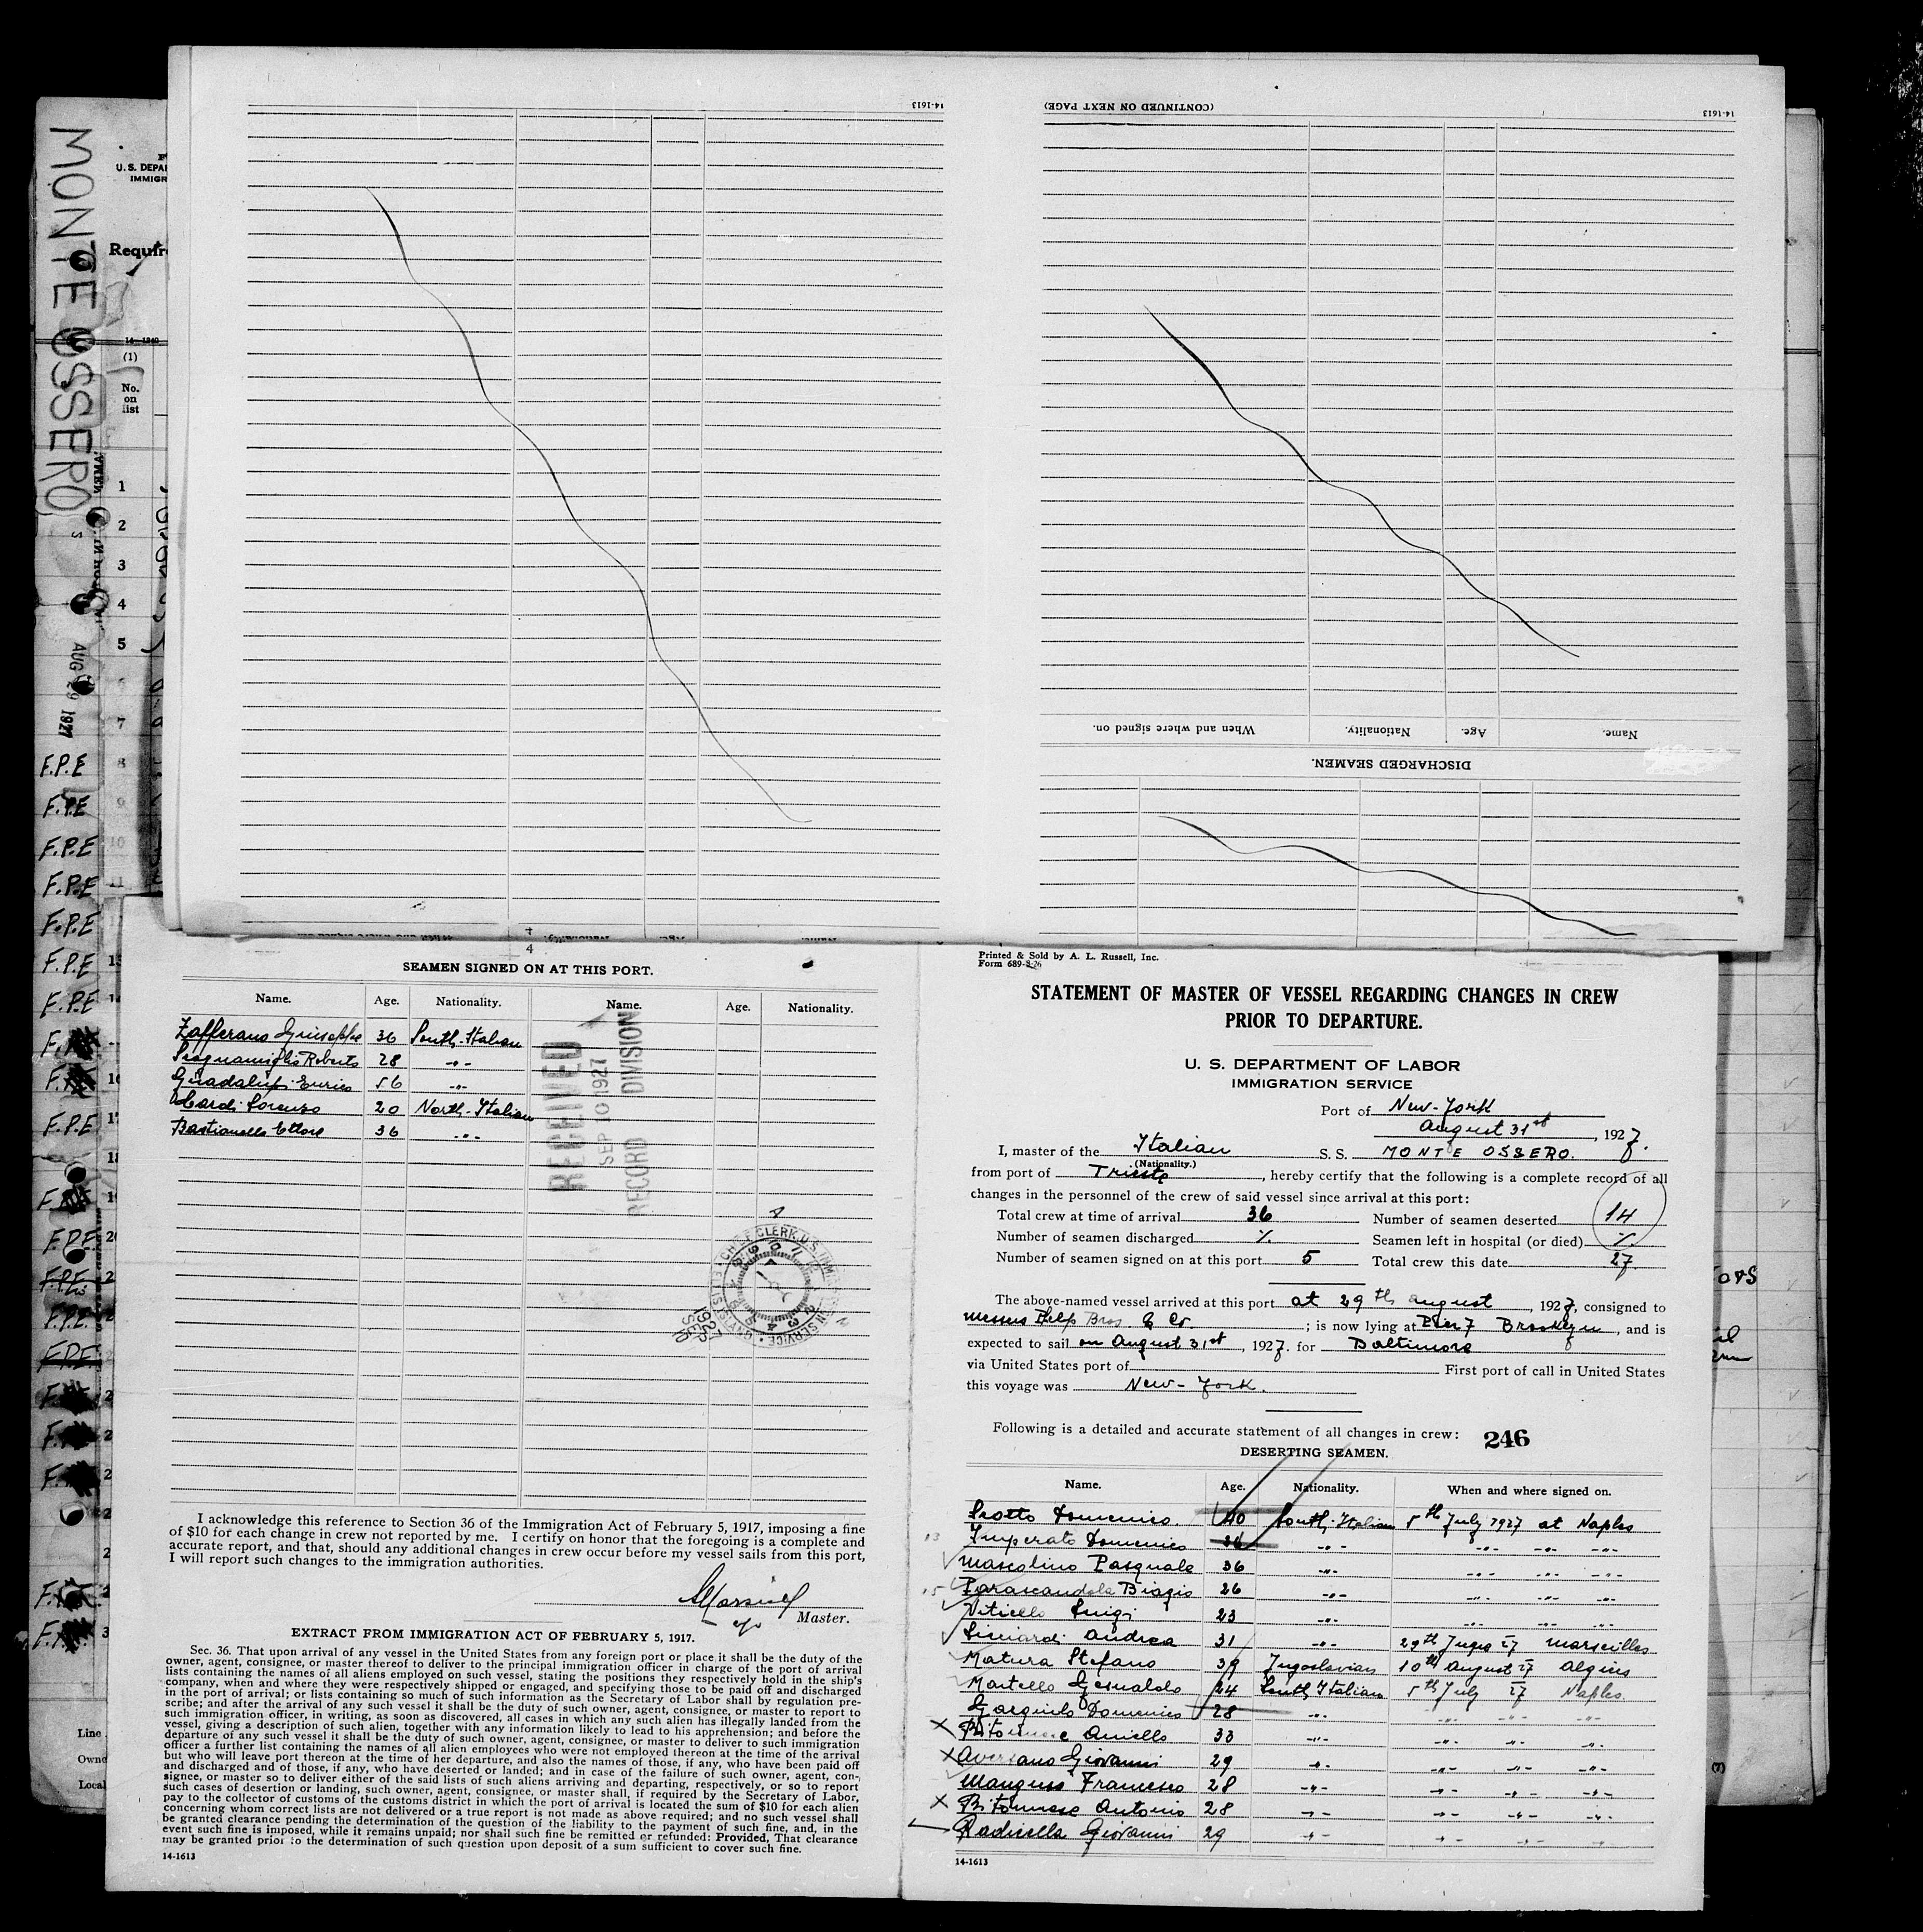 14-1613
(CONTINUED ON NEXT PAGE)
14-1613
MONTE OSSERO
U. S. DEPA
IMMIGR
Require
14-1240
(1)
No.
on
list
1
2
3
4
5
7
8
9
10
11
AUG 29 1927
F.P.E
F.P.E
F.P.E
F.P.E
F.P.E
F.P.E
F.P.E
F.P.E
F.P.E
F.P.E
F.P.E
F.P.E
Line
Owne
Local
When and where signed on.
Nationality.
Age.
Name.
DISCHARGED SEAMEN.
4
SEAMEN SIGNED ON AT THIS PORT.
Name. Age. Nationality. Name. Age. Nationality.
Zafferano Giuseppe 36 South-Italian
Scognamiglio Roberto 28 -"-
Guadalupi Enrico 56 -"-
Lorenzo 20 North-Italian
Bastianello Ettore 36 -"-
RECEIVED
SEP 10 1927
RECORD DIVISION
1927
SEP
I acknowledge this reference to Section 36 of the Immigration Act of February 5, 1917, imposing a fine
of $10 for each change in crew not reported by me. I certify on honor that the foregoing is a complete and
accurate report, and that, should any additional changes in crew occur before my vessel sails from this port,
I will report such changes to the immigration authorities.
Master.
EXTRACT FROM IMMIGRATION ACT OF FEBRUARY 5, 1917.
Sec. 36. That upon arrival of any vessel in the United States from any foreign port or place it shall be the duty of the
owner, agent, consignee, or master thereof to deliver to the principal immigration officer in charge of the port of arrival
lists containing the names of all aliens employed on such vessel, stating the positions they respectively hold in the ship's
company, when and where they were respectively shipped or engaged, and specifying those to be paid off and discharged
in the port of arrival; or lists containing so much of such information as the Secretary of Labor shall by regulation pre-
scribe; and after the arrival of any such vessel it shall be the duty of such owner, agent, consignee, or master to report to
such immigration officer, in writing, as soon as discovered, all cases in which any such alien has illegally landed from the
vessel, giving a description of such alien, together with any information likely to lead to his apprehension; and before the
departure of any such vessel it shall be the duty of such owner, agent, consignee, or master to deliver to such immigration
officer a further list containing the names of all alien employees who were not employed thereon at the time of the arrival
but who will leave port thereon at the time of her departure, and also the names of those, if any, who have been paid off
and discharged and of those, if any, who have deserted or landed; and in case of the failure of such owner, agent, con-
signee, or master so to deliver either of the said lists of such aliens arriving and departing, respectively, or so to report
such cases of desertion or landing, such owner, agent, consignee, or master shall, if required by the Secretary of Labor,
pay to the collector of customs of the customs district in which the port of arrival is located the sum of $10 for each alien
concerning whom correct lists are not delivered or a true report is not made as above required; and no such vessel shall
be granted clearance pending the determination of the question of the liability to the payment of such fine, and, in the
event such fine is imposed, while it remains unpaid; nor shall such fine be remitted or refunded: Provided, That clearance
may be granted prior to the determination of such question upon deposit of a sum sufficient to cover such fine.
14-1613
Printed & Sold by A. L. Russell, Inc.
Form 689-8-26
STATEMENT OF MASTER OF VESSEL REGARDING CHANGES IN CREW
PRIOR TO DEPARTURE.
U. S. DEPARTMENT OF LABOR
IMMIGRATION SERVICE
Port of New-York
August 31st, 1927.
I, master of the Italian S. S. MONTE OSSERO.
(Nationality.)
from port of Trieste, hereby certify that the following is a complete record of all
changes in the personnel of the crew of said vessel since arrival at this port:
Total crew at time of arrival 36 Number of seamen deserted 14
Number of seamen discharged %. Seamen left in hospital (or died) %.
Number of seamen signed on at this port 5 Total crew this date 27.
The above-named vessel arrived at this port at 29th august, 1927, consigned to
Messrs Phelps Bros & Co.; is now lying at Pier 7 Brooklyn, and is
expected to sail on August 31st, 1927. for Baltimore
via United States port of First port of call in United States
this voyage was New-York.
Following is a detailed and accurate statement of all changes in crew: 246
DESERTING SEAMEN.
Name. Age. Nationality. When and where signed on.
Scotto Domenico. 40 South-Italian 5th July 1927 at Naples
13 Imperato Domenico 36 -"- -"- -"- -"-
Mascolino Pasquale 36 -"- -"- -"- -"-
15 Parascandola Biagio 26 -"- -"- -"- -"-
Viticello Luigi 23 -"- -"- -"- -"-
Andrea 31 -"- 29th 27 Marseilles
Matura Stefano 39 Jugoslavian 10th August 27 Algiers
Martello Gesualdo 24 South Italian 5th July 27 Naples.
Domenico 28 -"- -"- -"- -"-
X Aniello 33 -"- -"- -"- -"-
X Aversano Giovanni 29 -"- -"- -"- -"-
Francesco 28 -"- -"- -"- -"-
X Antonio 28 -"- -"- -"- -"-
Radicella Giovanni 29 -"- -"- -"- -"-
14-1613
(7)